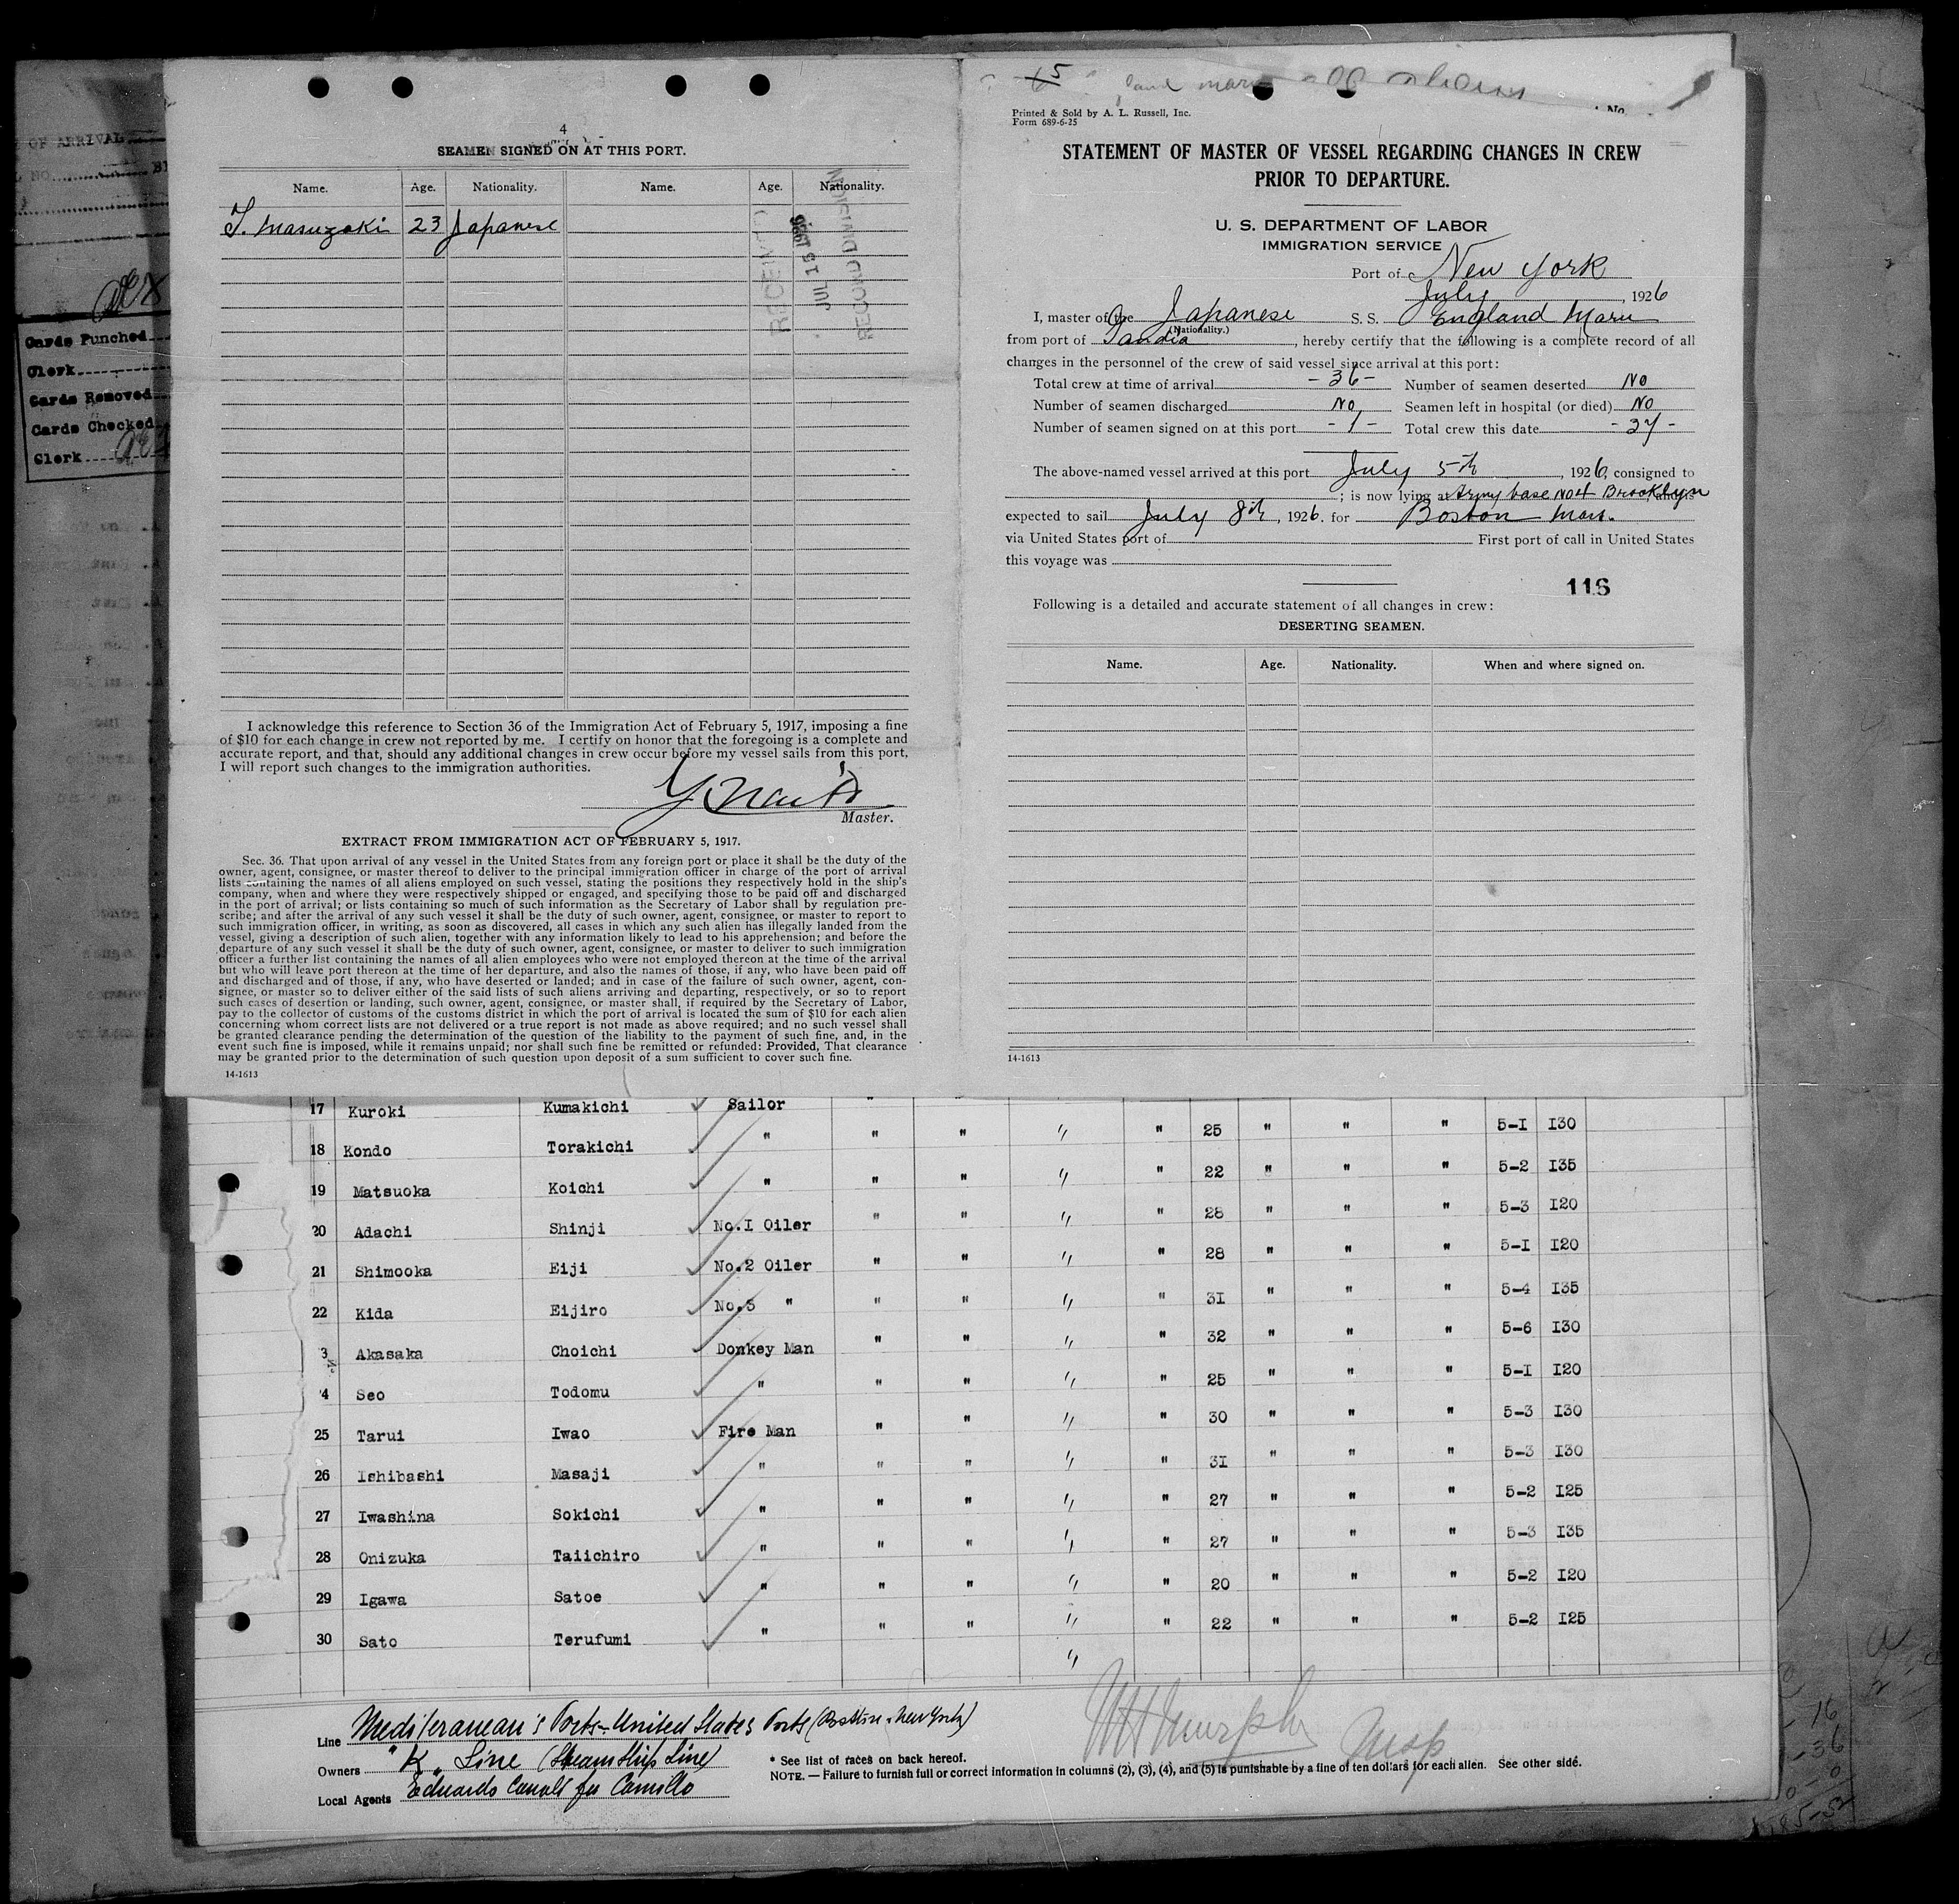 4
SEAMEN SIGNED ON AT THIS PORT.
Name. Age. Nationality. Name. Age. Nationality.
T. Masuzaki 23 Japanese
RECEIVED
JUL 15 1926
RECORD DIVISION
I acknowledge this reference to Section 36 of the Immigration Act of February 5, 1917, imposing a fine
of $10 for each change in crew not reported by me. I certify on honor that the foregoing is a complete and
accurate report, and that, should any additional changes in crew occur before my vessel sails from this port,
I will report such changes to the immigration authorities.
Master.
EXTRACT FROM IMMIGRATION ACT OF FEBRUARY 5, 1917.
Sec. 36. That upon arrival of any vessel in the United States from any foreign port or place it shall be the duty of the
owner, agent, consignee, or master thereof to deliver to the principal immigration officer in charge of the port of arrival
lists containing the names of all aliens employed on such vessel, stating the positions they respectively hold in the ship's
company, when and where they were respectively shipped or engaged, and specifying those to be paid off and discharged
in the port of arrival; or lists containing so much of such information as the Secretary of Labor shall by regulation pre-
scribe; and after the arrival of any such vessel it shall be the duty of such owner, agent, consignee, or master to report to
such immigration officer, in writing, as soon as discovered, all cases in which any such alien has illegally landed from the
vessel, giving a description of such alien, together with any information likely to lead to his apprehension; and before the
departure of any such vessel it shall be the duty of such owner, agent, consignee, or master to deliver to such immigration
officer a further list containing the names of all alien employees who were not employed thereon at the time of the arrival
but who will leave port thereon at the time of her departure, and also the names of those, if any, who have been paid off
and discharged and of those, if any, who have deserted or landed; and in case of the failure of such owner, agent, con-
signee, or master so to deliver either of the said lists of such aliens arriving and departing, respectively, or so to report
such cases of desertion or landing, such owner, agent, consignee, or master shall, if required by the Secretary of Labor,
pay to the collector of customs of the customs district in which the port of arrival is located the sum of $10 for each alien
concerning whom correct lists are not delivered or a true report is not made as above required; and no such vessel shall
be granted clearance pending the determination of the question of the liability to the payment of such fine, and, in the
event such fine is imposed, while it remains unpaid; nor shall such fine be remitted or refunded: Provided, That clearance
may be granted prior to the determination of such question upon deposit of a sum sufficient to cover such fine.
14-1613
Printed & Sold by A. L. Russell, Inc.
Form 689-6-25
No.
STATEMENT OF MASTER OF VESSEL REGARDING CHANGES IN CREW
PRIOR TO DEPARTURE.
U. S. DEPARTMENT OF LABOR
IMMIGRATION SERVICE
Port of New York
July, 1926
I, master of the Japanese S. S. England Maru
(Nationality.)
from port of, hereby certify that the following is a complete record of all
changes in the personnel of the crew of said vessel since arrival at this port:
Total crew at time of arrival - 36 - Number of seamen deserted No
Number of seamen discharged No Seamen left in hospital (or died) No
Number of seamen signed on at this port - 1 - Total crew this date - 37 -
The above-named vessel arrived at this port July 5th, 1926, consigned to
; is now lying at Army base No4 Brooklyn, and
expected to sail July 8th, 1926. for Boston Mass.
via United States port of First port of call in United States
this voyage was
116
Following is a detailed and accurate statement of all changes in crew:
DESERTING SEAMEN.
Name. Age. Nationality. When and where signed on.
14-1613
OF ARRIVAL
Cards Punched
Clerk
Cards Removed
Cards Checked
Clerk
17 Kuroki Kumakichi Sailor "
18 Kondo Torakichi " " " " " 25 " " " 5-1 130
19 Matsuoka Koichi " " " " " 22 " " " 5-2 135
20 Adachi Shinji No.1 Oiler " " " " 28 " " " 5-3 120
21 Shimooka Eiji No.2 Oiler " " " " 28 " " " 5-1 120
22 Kida Eijiro No.3 " " " " " 31 " " " 5-4 135
3 Akasaka Choichi Donkey Man " " " " 32 " " " 5-6 130
4 Seo Todomu " " " " " 25 " " " 5-1 120
25 Tarui Iwao Fire Man " " " " 30 " " " 5-3 130
26 Ishibashi Masaji " " " " " 31 " " " 5-3 130
27 Iwashina Sokichi " " " " " 27 " " " 5-2 125
28 Onizuka Taiichiro " " " " " 27 " " " 5-3 135
29 Igawa Satoe " " " " " 20 " " " 5-2 120
30 Sato Terufumi " " " " " 22 " " " 5-2 125
Line Mediteranean's Ports-United States Ports (Boston-New York)
Owners "K" Line (Steamship Line)
Local Agents Eduardo Canali fu Camillo
* See list of races on back hereof.
NOTE. — Failure to furnish full or correct information in columns (2), (3), (4), and (5) is punishable by a fine of ten dollars for each alien. See other side.